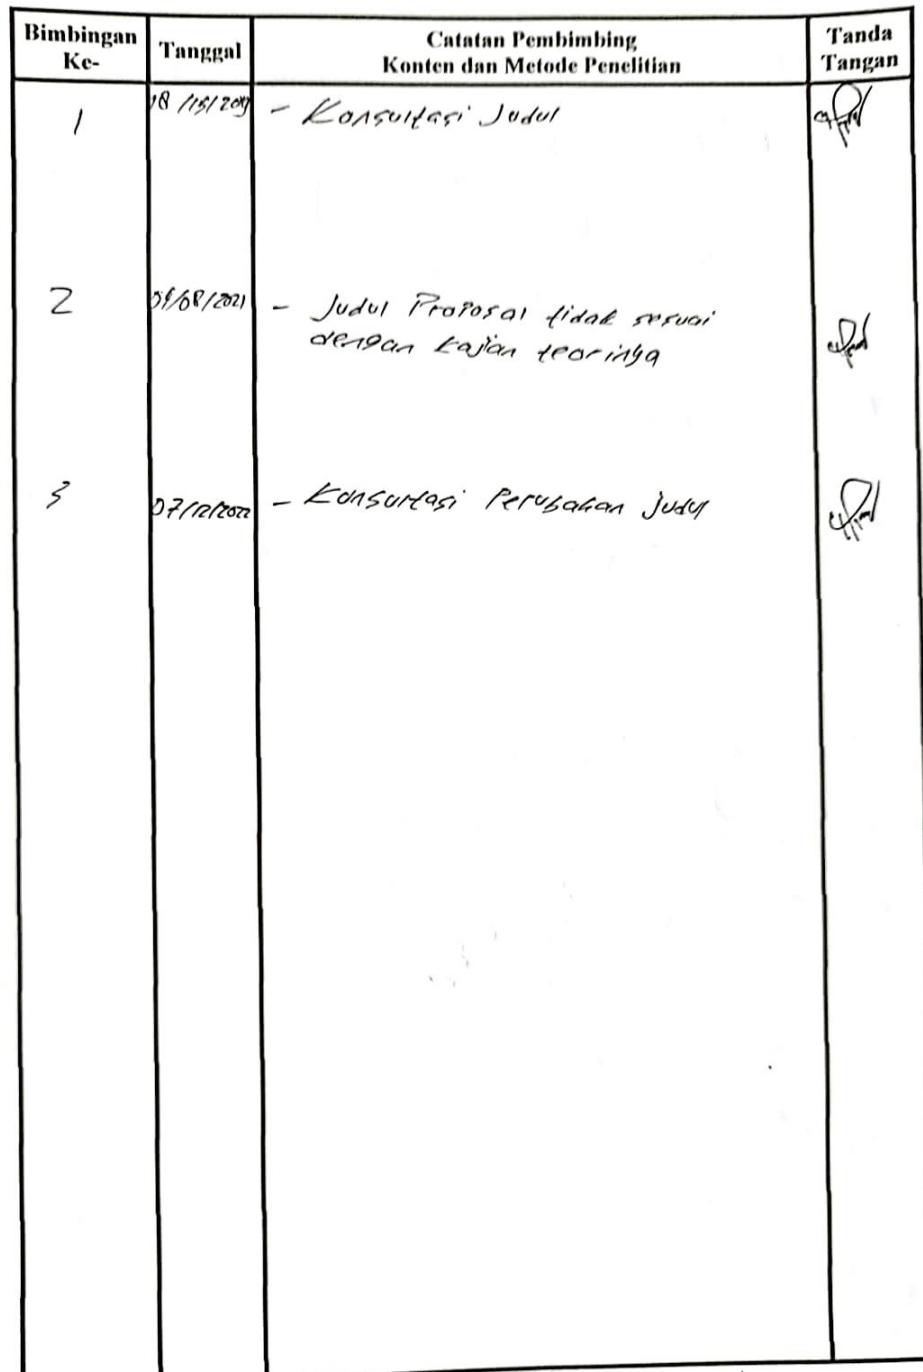 Bimbingan Ke-
Tanggal
Catatan Pembimbing
Konten dan Metode Penelitian
Tanda Tangan
1
- Konsultasi Judul
2
- Judul Proposal tidak sesuai
dengan kajian teorinya
3
07/12/2022
- Konsultasi Perubahan judul